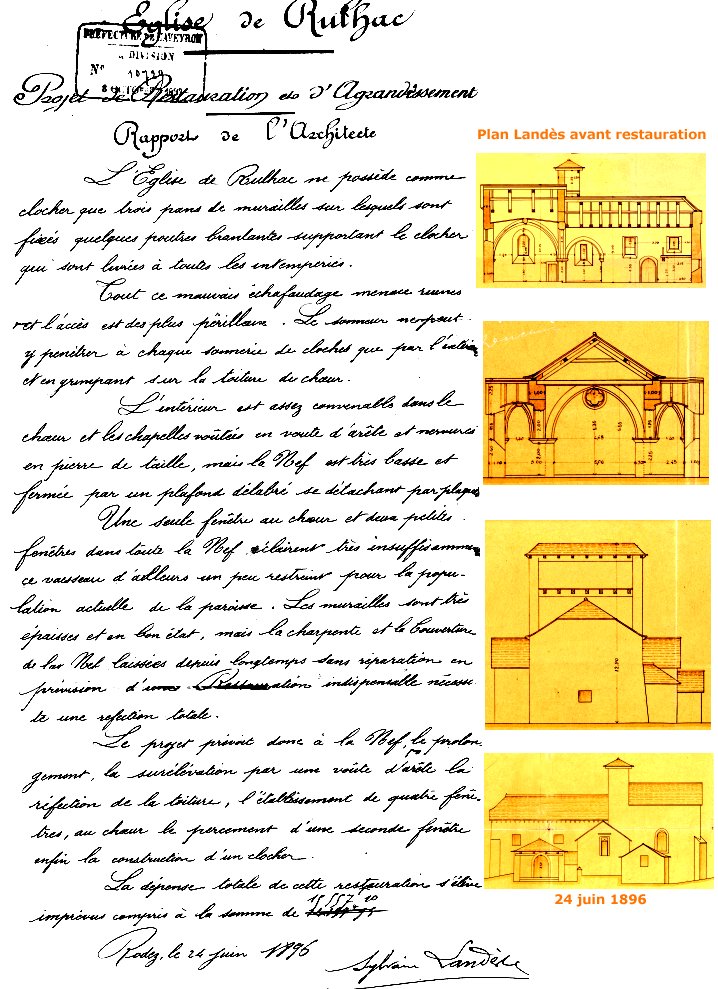 Église de Rulhac
PRÉFECTURE DE L'AVEYRON
DIVISION
N° 10729
Projet de Restauration et d'Agrandissement
Rapport de l'Architecte
L'Église de Rulhac ne possède comme
clocher que trois pans de murailles sur lesquels sont
fixés quelques poutres branlantes supportant le clocher
qui sont livrées à toutes les intempéries.
Tout ce mauvais échafaudage menace ruines
et l'accès est des plus périlleux. Le sonneur ne peut
y pénétrer à chaque sonnerie de cloches que par l'extérieur
et en grimpant sur la toiture du chœur.
L'intérieur est assez convenable dans le
chœur et les chapelles voûtées en voute d'arête et nervures
en pierre de taille, mais la Nef est très basse et
fermée par un plafond délabré se détachant par plaques
Une seule fenêtre au chœur et deux petites
fenêtres dans toute la Nef éclairent très insuffisamment
ce vaisseau d'ailleurs un peu restreint pour la popu-
lation actuelle de la paroisse. Les murailles sont très
épaisses et en bon état, mais la charpente et la Couverture
de la Nef laissées depuis longtemps sans réparation en
prévision d'une Restauration indispensable nécessi-
te une refection totale.
Le projet prévoit donc à la Nef, le prolon-
gement, la surélévation par une voûte d'arête la
réfection de la toiture, l'établissement de quatre fenê-
tres, au chœur le percement d'une seconde fenêtre
enfin la construction d'un clocher.
La dépense totale de cette restauration s'élève
imprévus compris à la somme de 15557 10
Rodez, le 24 juin 1896
Sylvain Landès
Plan Landès avant restauration
24 juin 1896